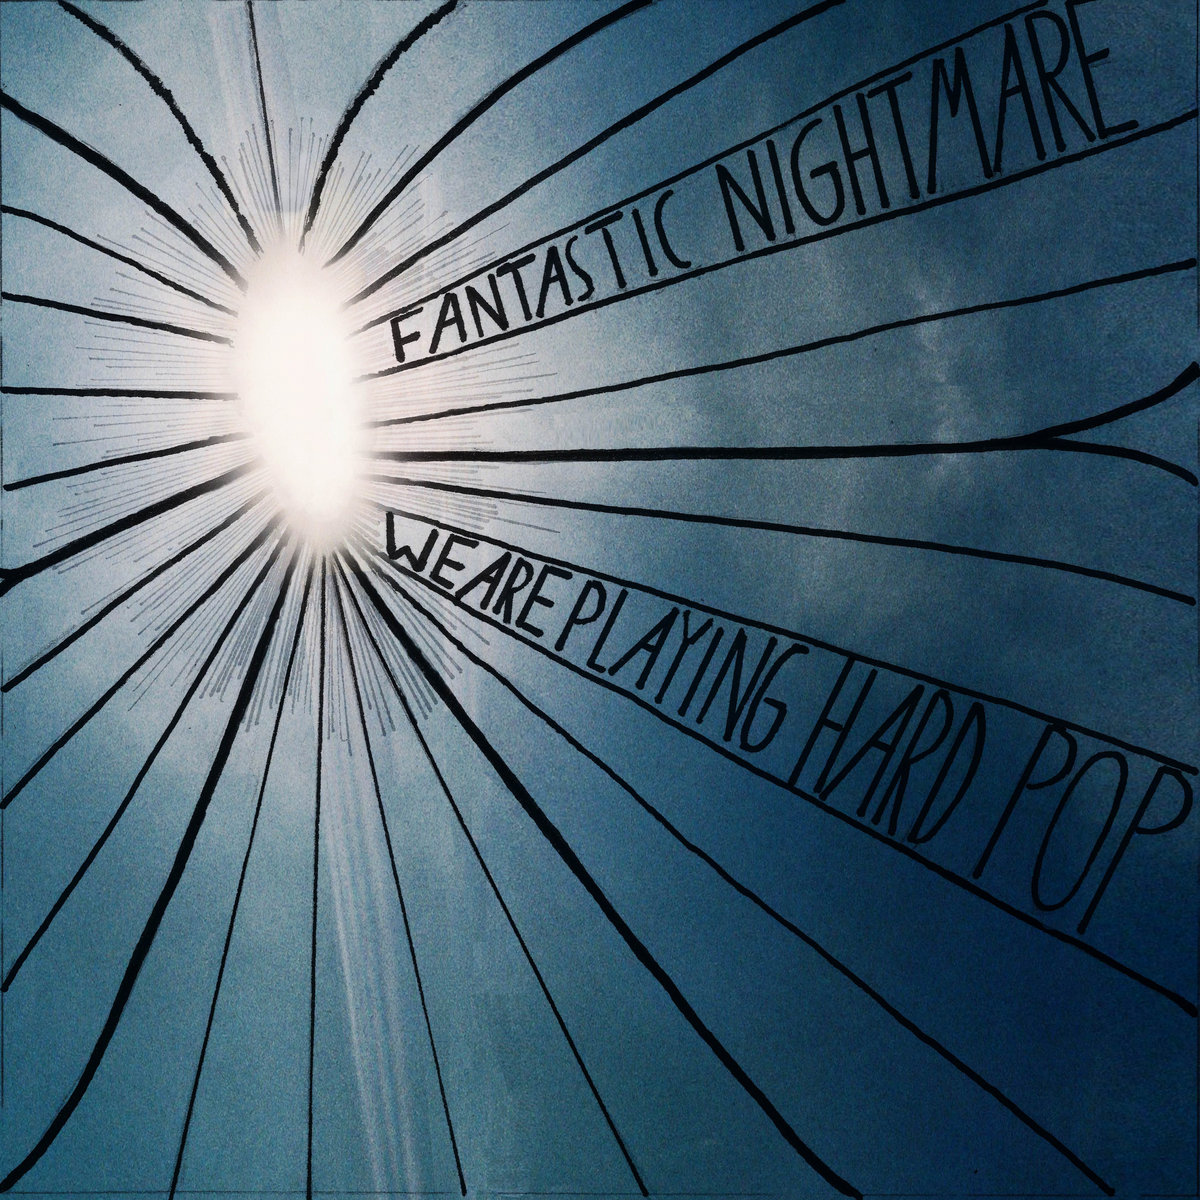 FANTASTIC NIGHTMARE
WE ARE PLAYING HARD POP